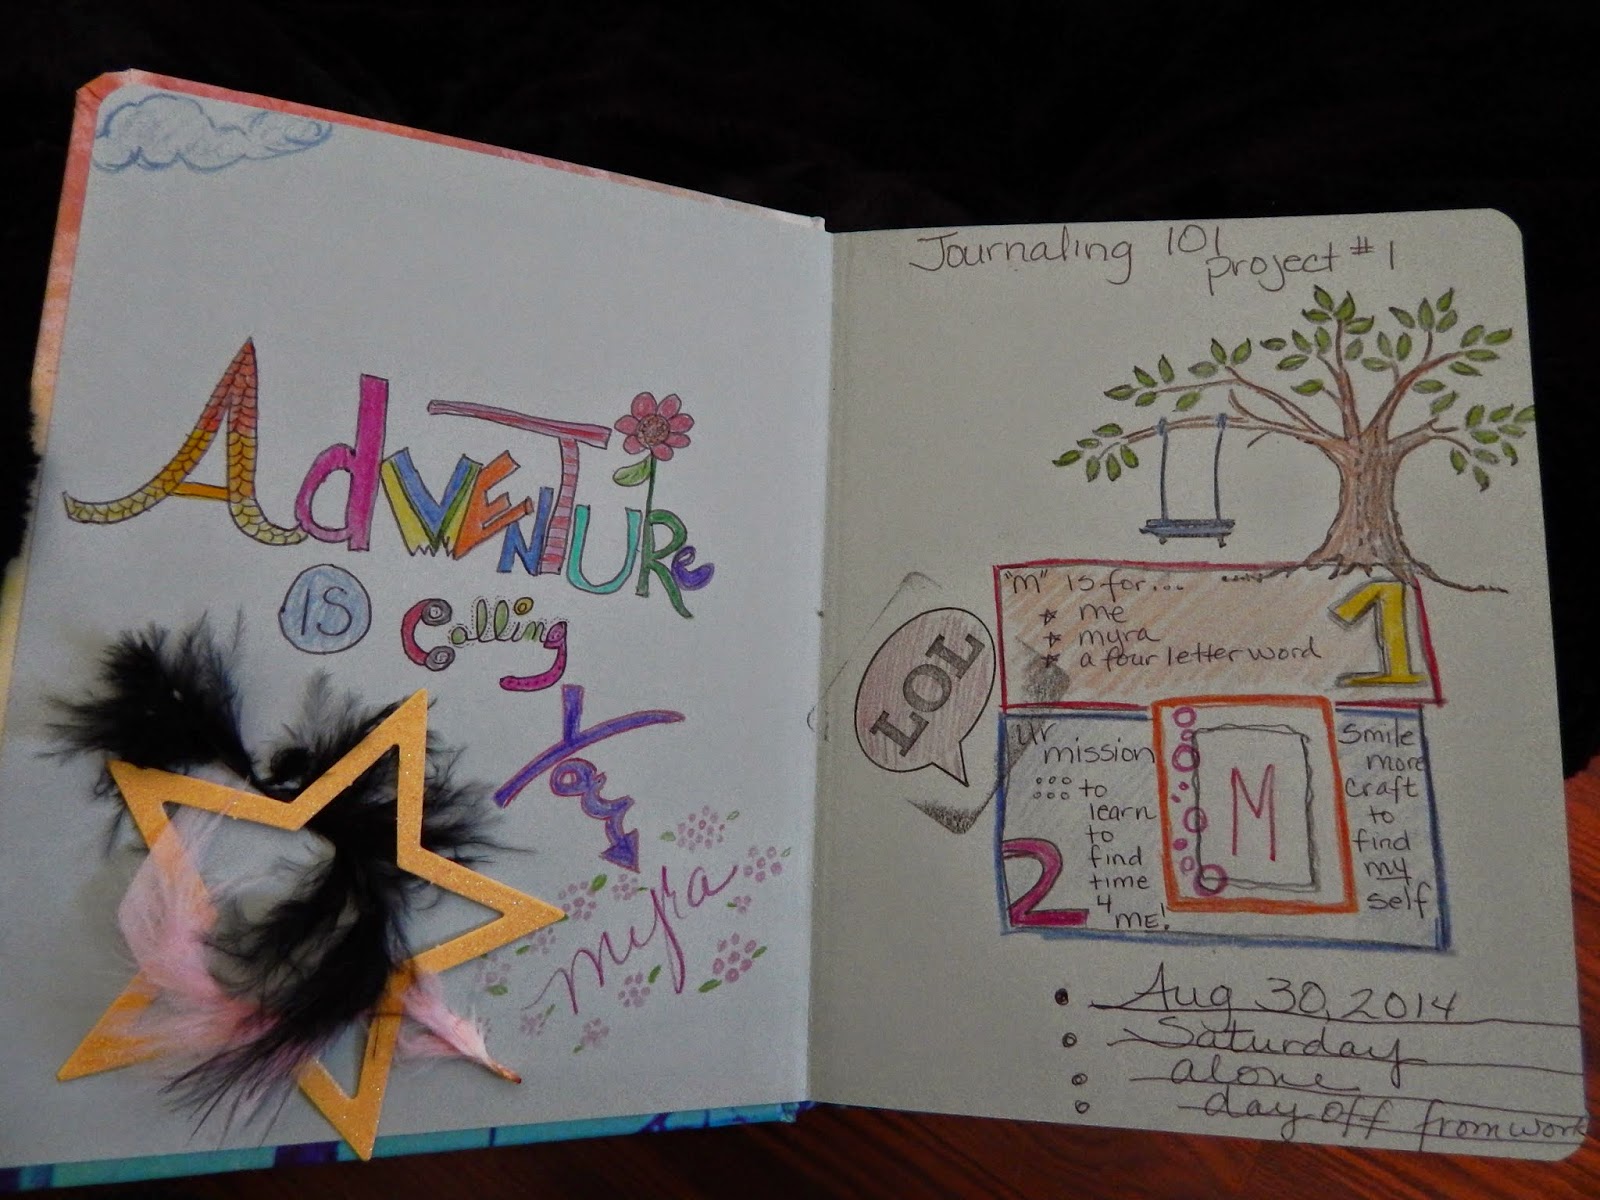 AdVENTURe
IS Calling
You
myra
Journaling 101
project #1
"m" is for...
me
myra
a four letter word
1
LOL
ur
mission
to
learn
to
find
time
4
ME!
2
M
smile
more
craft
to
find
my
self
Aug 30, 2014
Saturday
alone
day off from work